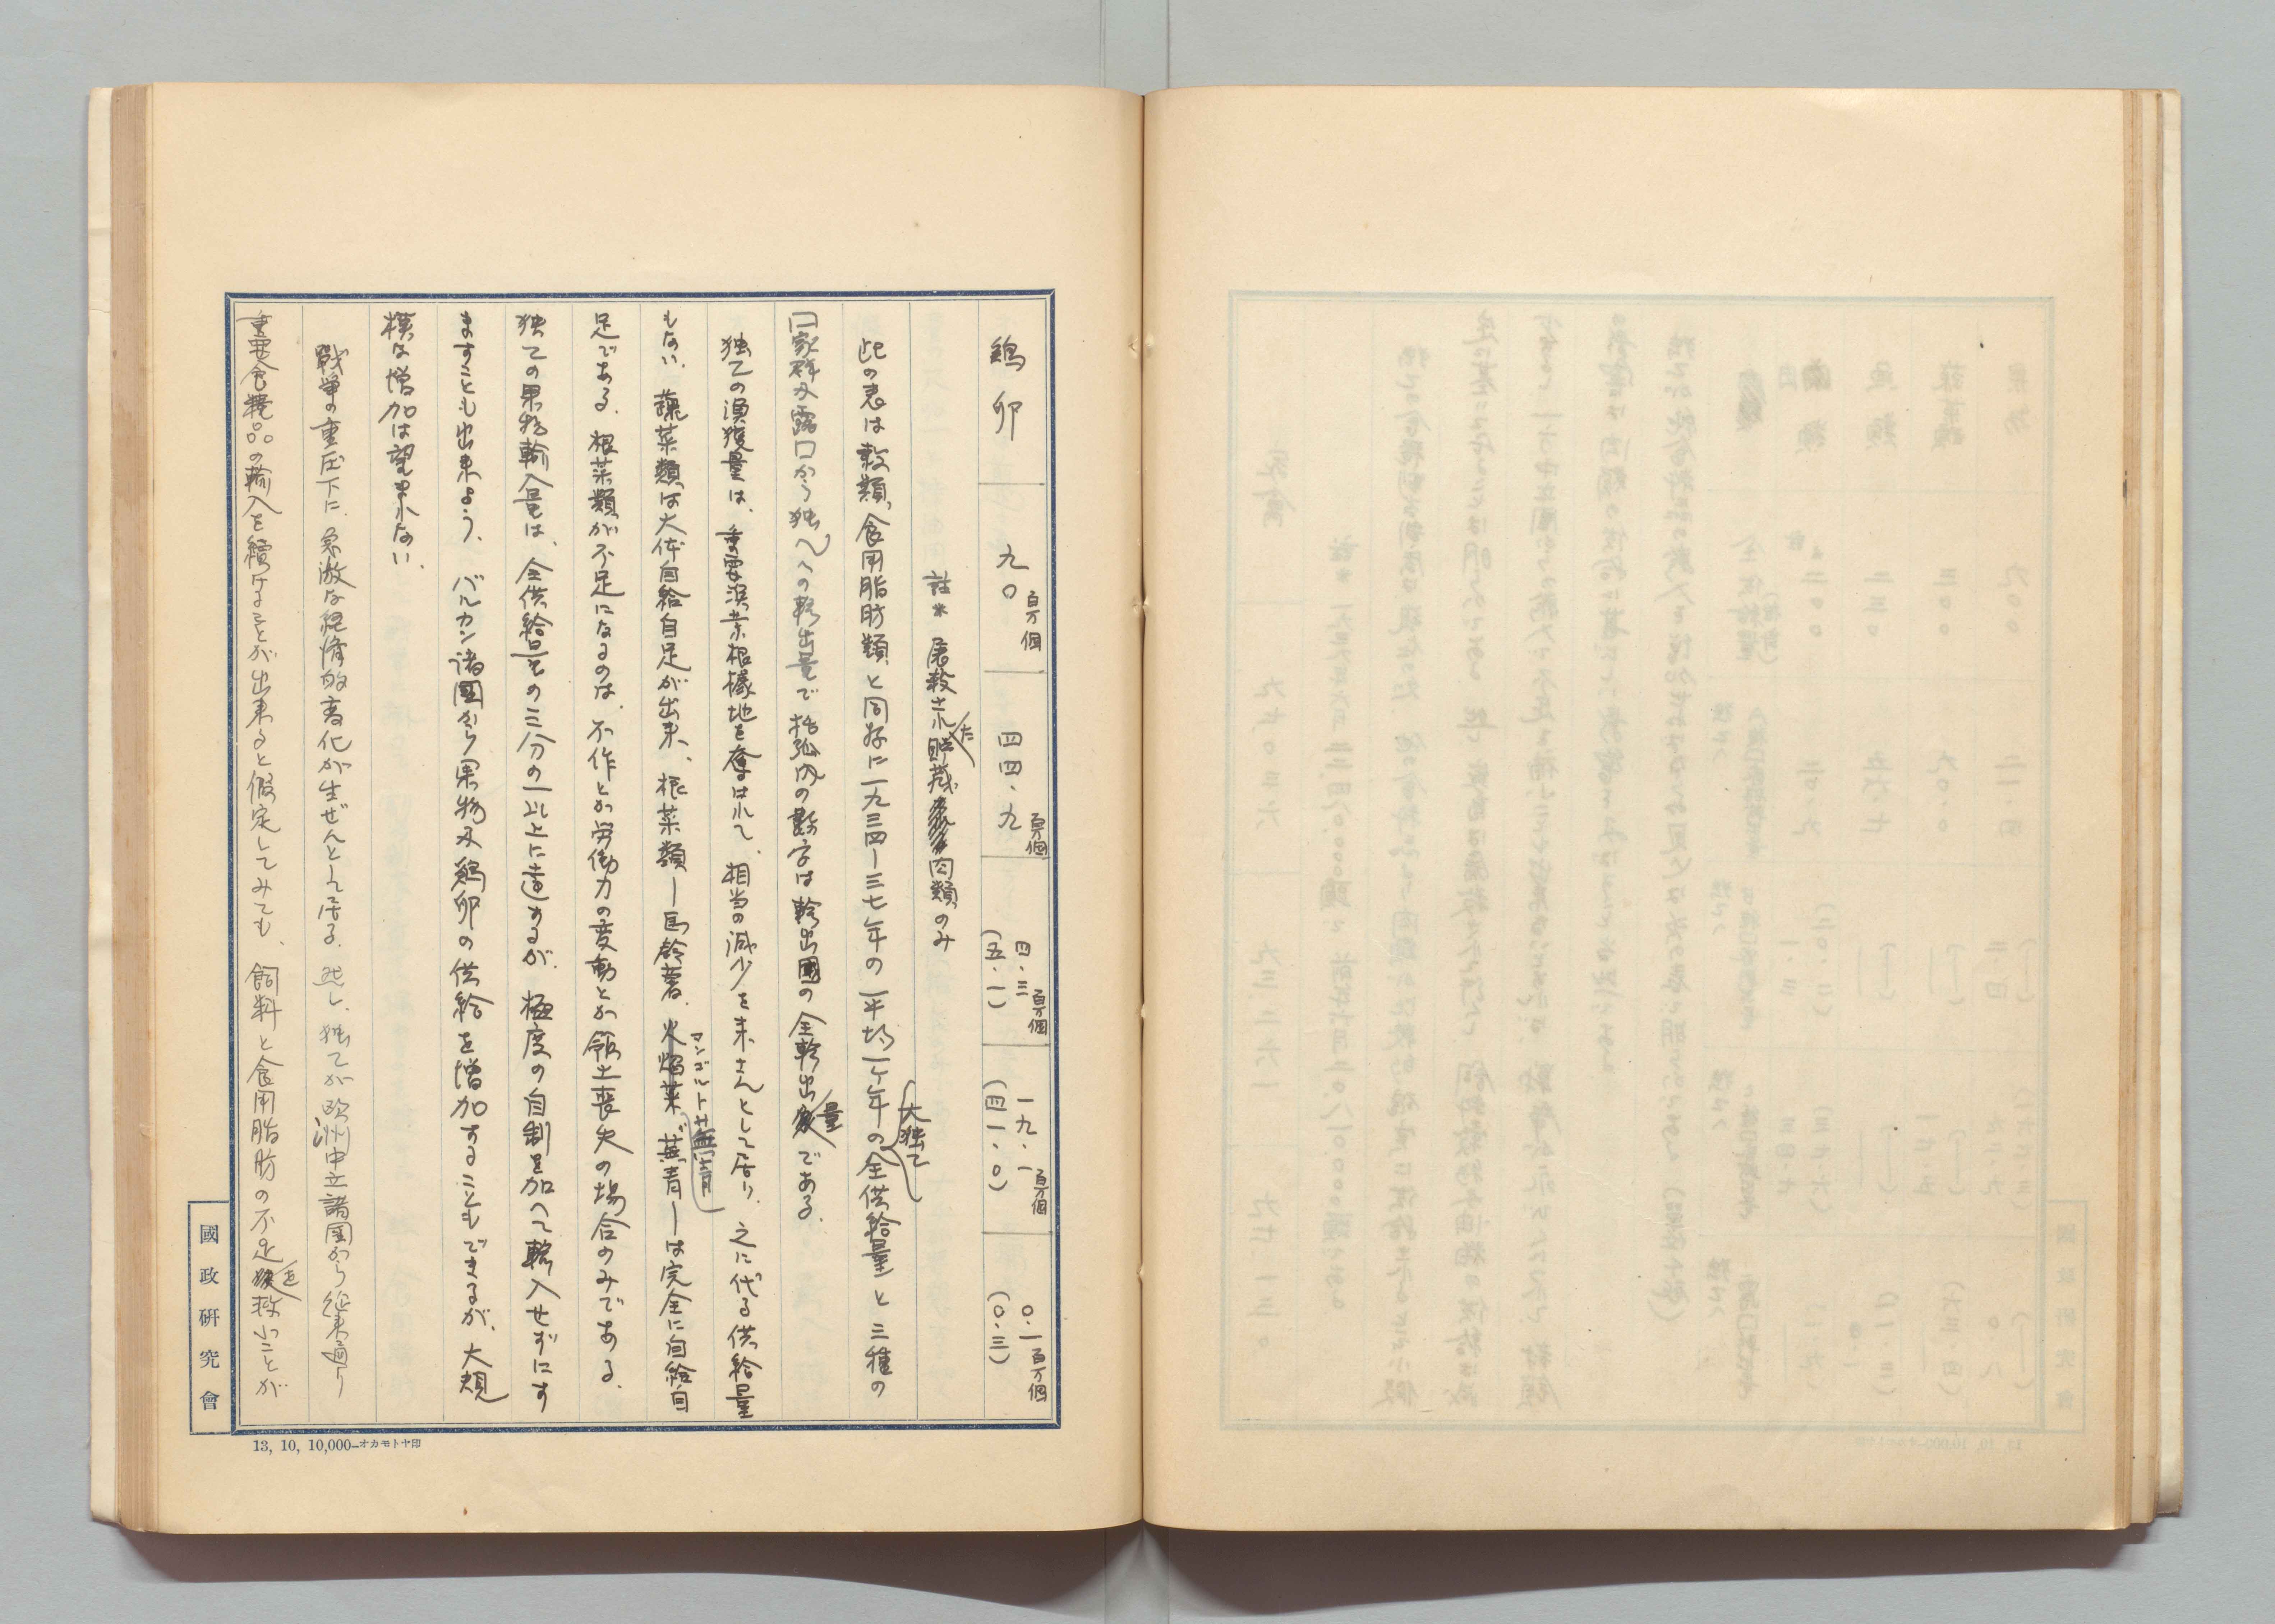 鶏卵 九〇百万個 四四・九百万個 四・三百万個(五・一) 一九・一百万個(四一・〇) 〇・一百万個(〇・三)
註* 屠殺された貯蔵肉類のみ
此の表は穀類、食用脂肪類と同様に一九三四ー三七年の平均一ケ年の大独乙全供給量と三種の
囗家群及露囗から独乙への輸出量で括弧内の数字は輸出國の全輸出量である.
独乙の漁獲量は、重要漁業根據地を奪はれて、相当の減少を来さんとして居り、之に代る供給量
もない. 蔬菜類は大体自給自足が出来、根菜類ー馬鈴薯、火焔菜、マンゴルト蕪青ーは完全に自給自
足である. 根菜類が不足になるのは、不作とか労働力の変動とか領土喪失の場合のみである.
独乙の果物輸入量は、全供給量の三分の一以上に達するが、極度の自制を加へて輸入せずにす
ますことも出来よう、バルカン諸國から果物及鶏卵の供給を増加することもできるが、大規
模な増加は望まれない.
戰爭の重圧下に、急激な経済的変化が生ぜんとして居る. 然し、独乙が欧洲中立諸国から従来通り
重要食糧品の輸入を續けることが出来ると假定してみても、飼料と食用脂肪の不足を救ふことが
國政研究會
13, 10, 10,000—オカモトヤ印